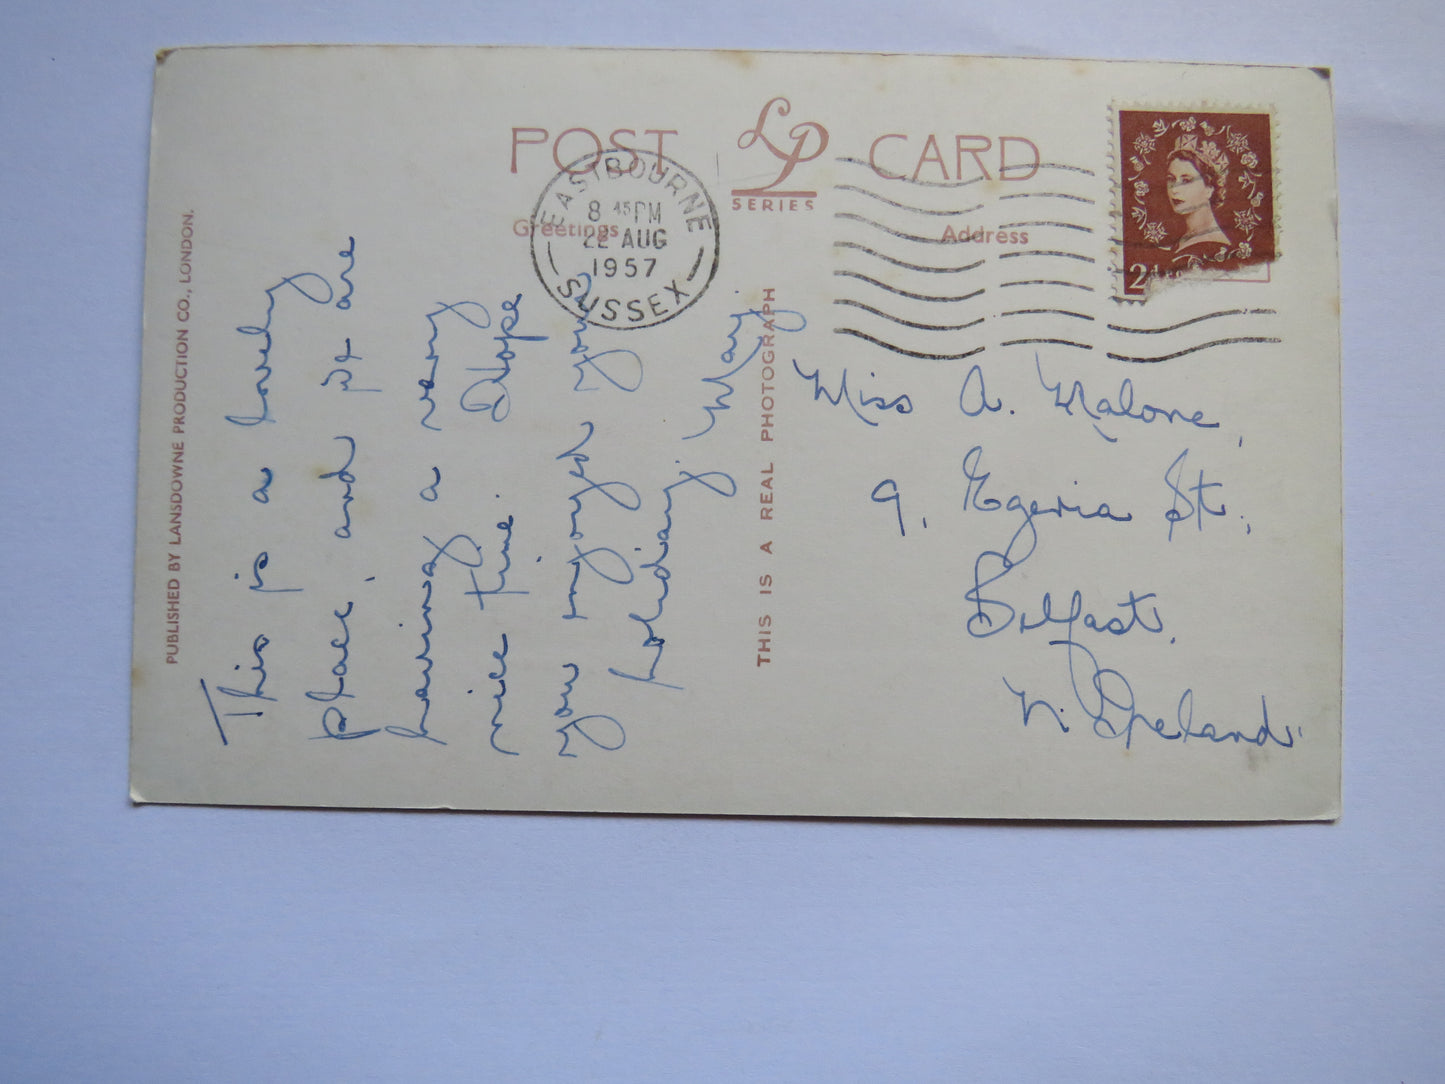 POST CARD
LP
SERIES
Greetings
Address
EASTBOURNE
8 45 PM
22 AUG
1957
SUSSEX
2d
PUBLISHED BY LANSDOWNE PRODUCTION CO., LONDON.
This is a lovely
place, and we are
having a very
nice time. Hope
you enjoyed your
holiday. May
THIS IS A REAL PHOTOGRAPH
Miss A. Malone,
9, Egeria St.,
Belfast.
N. Ireland.